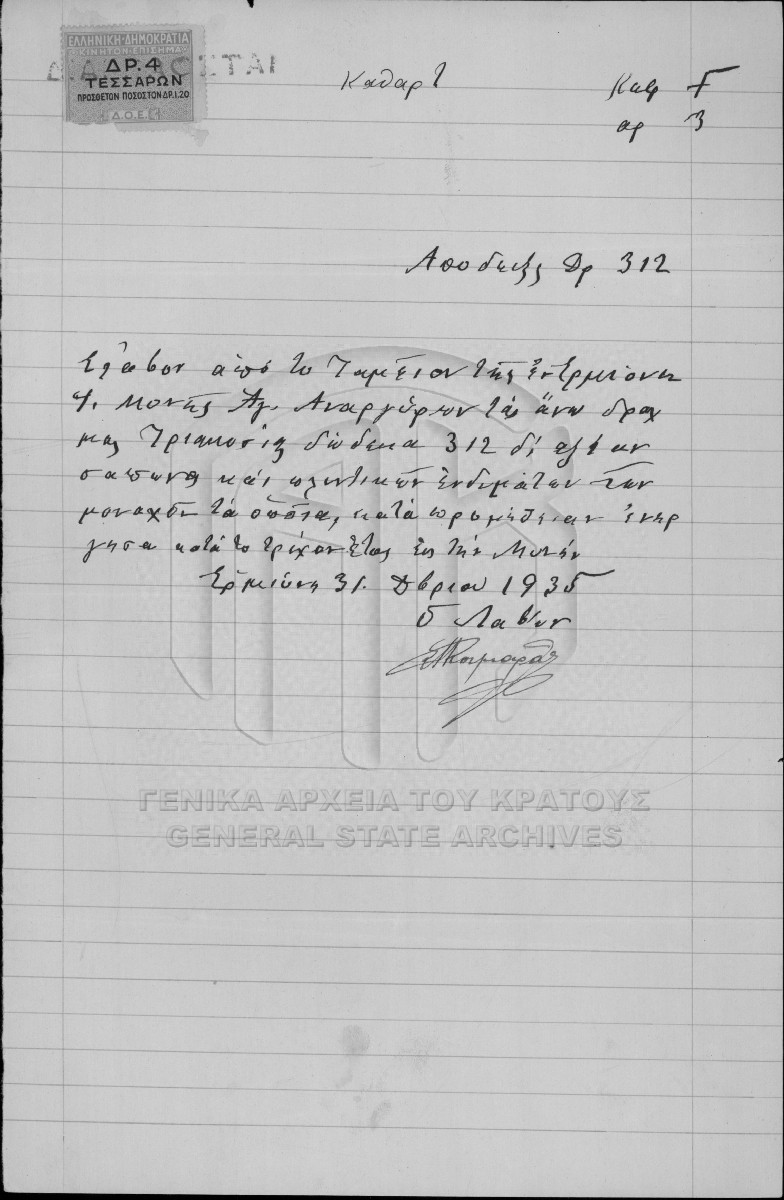 ΕΛΛΗΝΙΚΗ·ΔΗΜΟΚΡΑΤΙΑ
ΚΙΝΗΤΟΝ·ΕΠΙΣΗΜΑ
ΔΡ.4
ΤΕΣΣΑΡΩΝ
ΠΡΟΣΘΕΤΟΝ ΠΟΣΟΣΤΟΝ ΔΡ.1.20
Δ.Ο.Ε.
Καθαρ
Κεφ Γ
αρ 3
Αποδειξις Δρ 312
Ελαβον από το Ταμείον της εν Ερμιόνη
Ι. Μονής Αγ. Αναργύρων τας άνω δραχ
μας Τριακοσίας δώδεκα 312 δι' αξίαν
σαπωνα και πλυντικών ενδυμάτων των
μοναχών τα οποία, κατά προμήθειαν ενηρ
γησα κατά το τρέχον έτος εις την Μονήν
Ερμιόνη 31. Δβριου 1935
Ο Λαβων
ΓΕΝΙΚΑ ΑΡΧΕΙΑ ΤΟΥ ΚΡΑΤΟΥΣ
GENERAL STATE ARCHIVES